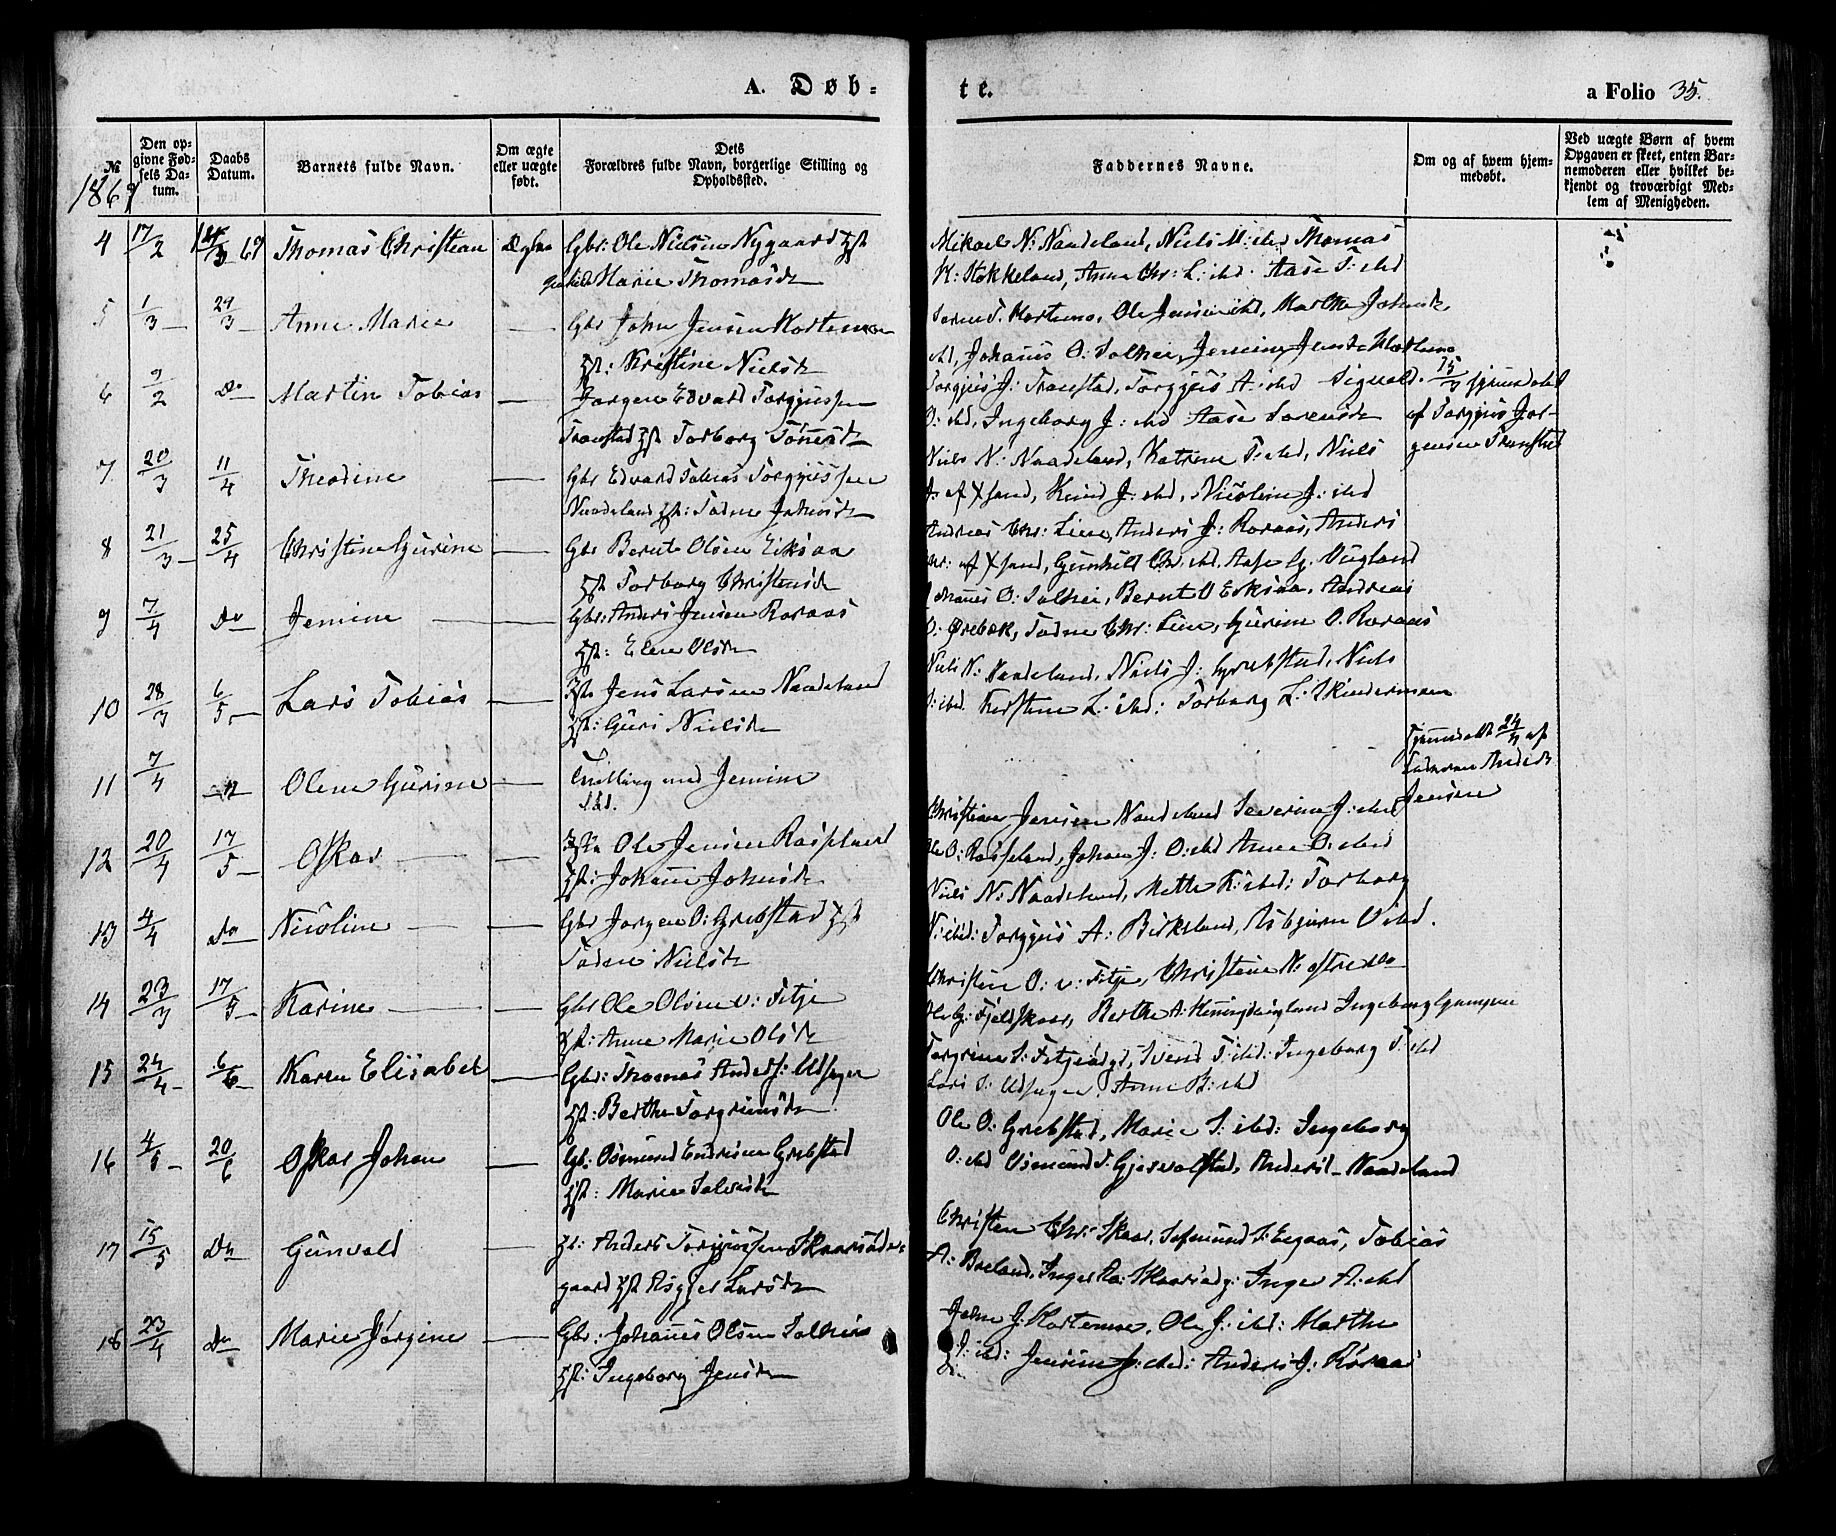 A. Døb-
te.
a Folio 35.
№
Den opgivne Fødsels Datum.
Daabs Datum.
Barnets fulde Navn.
Om ægte eller uægte født.
Dets Forældres fulde Navn, borgerlige Stilling og Opholdssted.
Faddernes Navne.
Om og af hvem hjemmedøbt.
Ved uægte Børn af hvem Opgaven er skeet, enten Barnemoderen eller hvilket bekjendt og troværdigt Medlem af Menigheden.
1869
4 17/2 69 Thomas Christian Ægte Gbr: Ole Nielsen Nygaard Hst
Marie Thomasdt
Mikael N: Naadeland, Niels M: ibd Thomas
K: Stokkeland, Anne Chr: L: ibd. Aase T: ibd
5 1/3 29/3 Anne Marie Gbr John Jensen Hortemoe
Hst: Kristine Nielsdt
Ole Jensen ibd, Marthe Johnsdt
ibd, Johanes O: Solhei, Jensine Jensdt Hortemo
6 9/2 Do Martin Tobias Jørgen Edvard Torgjussen
Transtad Hst Torborg Tønnesdt
Torgjus J: Transtad, Torgjus A: ibd Sigvald
O: ibd, Ingeborg J: ibd Aase Sørensdt
15/3 hjemmedøbt
af Torgjus Jørgensen Transtad
7 20/3 11/4 Theodine Gbr Edvard Tobias Torgjussen
Naadeland Hst: Todne Johnsdt
Niels N: Naadeland, Katrine T: ibd, Niels
J: af Xsand, Knud J: ibd, Nicoline J: ibd
8 21/3 25/4 Christine Gurine Gbr Bernt Olsen Eikjaa
Hst Torborg Christensdt
Andreas Chr: Lien, Anders J: Roraas, Anders
Chr: af Xsand, Gunhild Chr: ibd, Aase G. Vigland
9 7/4 Do Jensine Gbr: Anders Jensen Roraas
Hst: Elene Olsdt
Johanes O: Solhei, Bernt O Eikjaa, Andreas
O: Ørebæk, Todne Chr: Lien, Gurine O. Roraas
10 28/3 6/5 Lars Tobias Jens Larsen Naadeland
Hst: Guri Nielsdt
Niels N: Naadeland, Niels J: Grebstad, Niels
O: ibd. Kirstine L: ibd: Torborg L:
11 7/4 Olene Gurine Tvilling med Jensine
Hjemmedøbt 24/4 af
Faderen Anders
Jensen
12 20/4 17/5 Oskar Ole Jensen Rosseland
Hst: Johanne Johnsdt
Christian Jensen Naadeland Severine J: ibd
Ole O: Rosseland, Johan J: O: ibd Anne O: ibd
13 4/4 Do Nicoline Gbr Jørgen O: Grebstad Hst
Todne Nielsdt
Niels N: Naadeland, Mette K: ibd: Torborg
N: ibd: Torgjus A: Birkeland, Asbjørn O: ibd.
14 23/3 17/5 Karine Gbr Ole Olsen v: Fitje
Hst: Anne Marie Olsdt
Christen O: v: Fitje, Christine N:
Ole G: Fjeldskaar, Berthe A: Ingeborg
15 24/4 6/6 Karen Elisabet Gbr: Thomas Anders: Udhagen
Hst: Berthe Torgrimsdt
Torgrim S: Sven T: ibd: Ingeborg T: ibd
Lars Anne B: ibd
16 4/5 20/6 Oskar Johan Gbr: Osmund Endresen Grebstad
Hst: Marie Salvesdt
Ole O: Grebstad, Marie S: ibd: Ingeborg
O: ibd Osmund T: Gjervolstad, Anders Naadeland
17 15/5 Do Gunvald Anders Torgjussen Skaarsødegaard Hst Asgjer Larsdt
Christen Chr: Skaar, Tobias
A: Breland, Inger Aa: Skaarsødg: Inger A: ibd
18 23/4 Do Marie Jørgine Gbr: Johanes Olsen Solhei
Hst: Ingeborg Jensdt
John J: Hortemoe, Ole J: ibd: Marthe
J: ibd: Jensine J: ibd: Anders J: Roraas